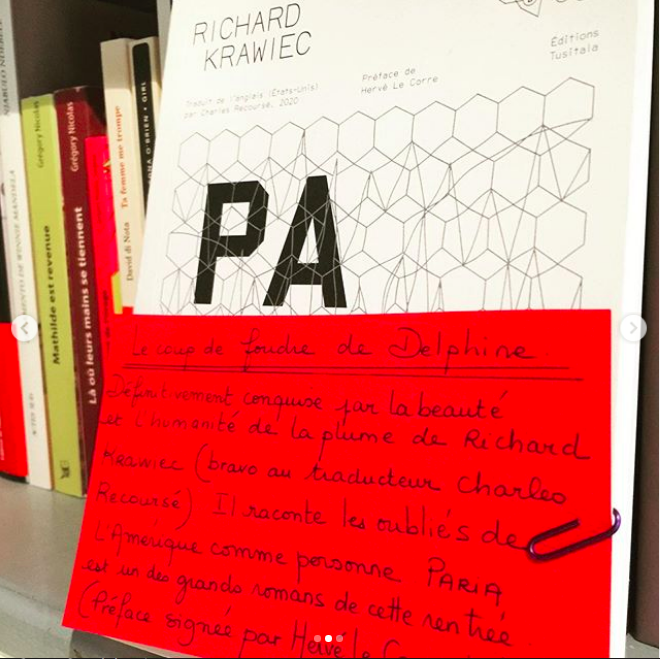 RICHARD
KRAWIEC
Éditions
Tusitala
Traduit de l'anglais (États-Unis)
par Charles Recoursé, 2020
Préface de
Hervé Le Corre
PA
Le coup de foudre de Delphine.
Définitivement conquise par la beauté
et l'humanité de la plume de Richard
Krawiec (bravo au traducteur Charles
Recoursé) Il raconte les oubliés de
L'Amérique comme personne PARIA
est un des grands romans de cette rentrée
(Préface signée par Hervé le
Grégory Nicolas
Mathilde est revenue
Grégory Nicolas
Là où leurs mains se tiennent
David di Nota
Ta femme me trompe
O'BRIEN • GIRL
DE WINNIE MANDELA